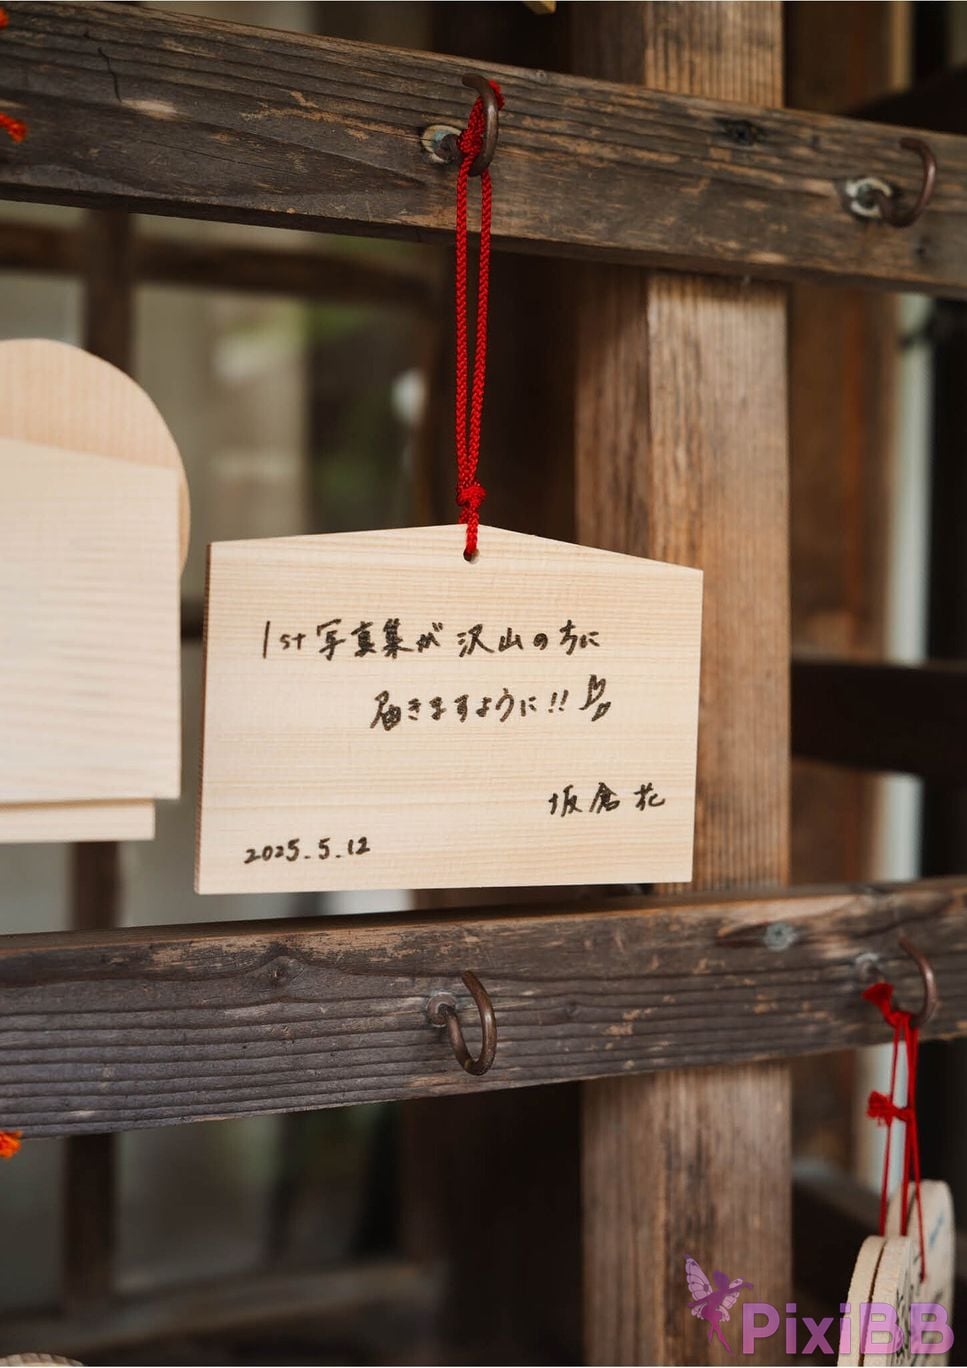 1st 写真集が沢山の方に
届きますように!!
坂倉花
2025.5.12
PixiBB